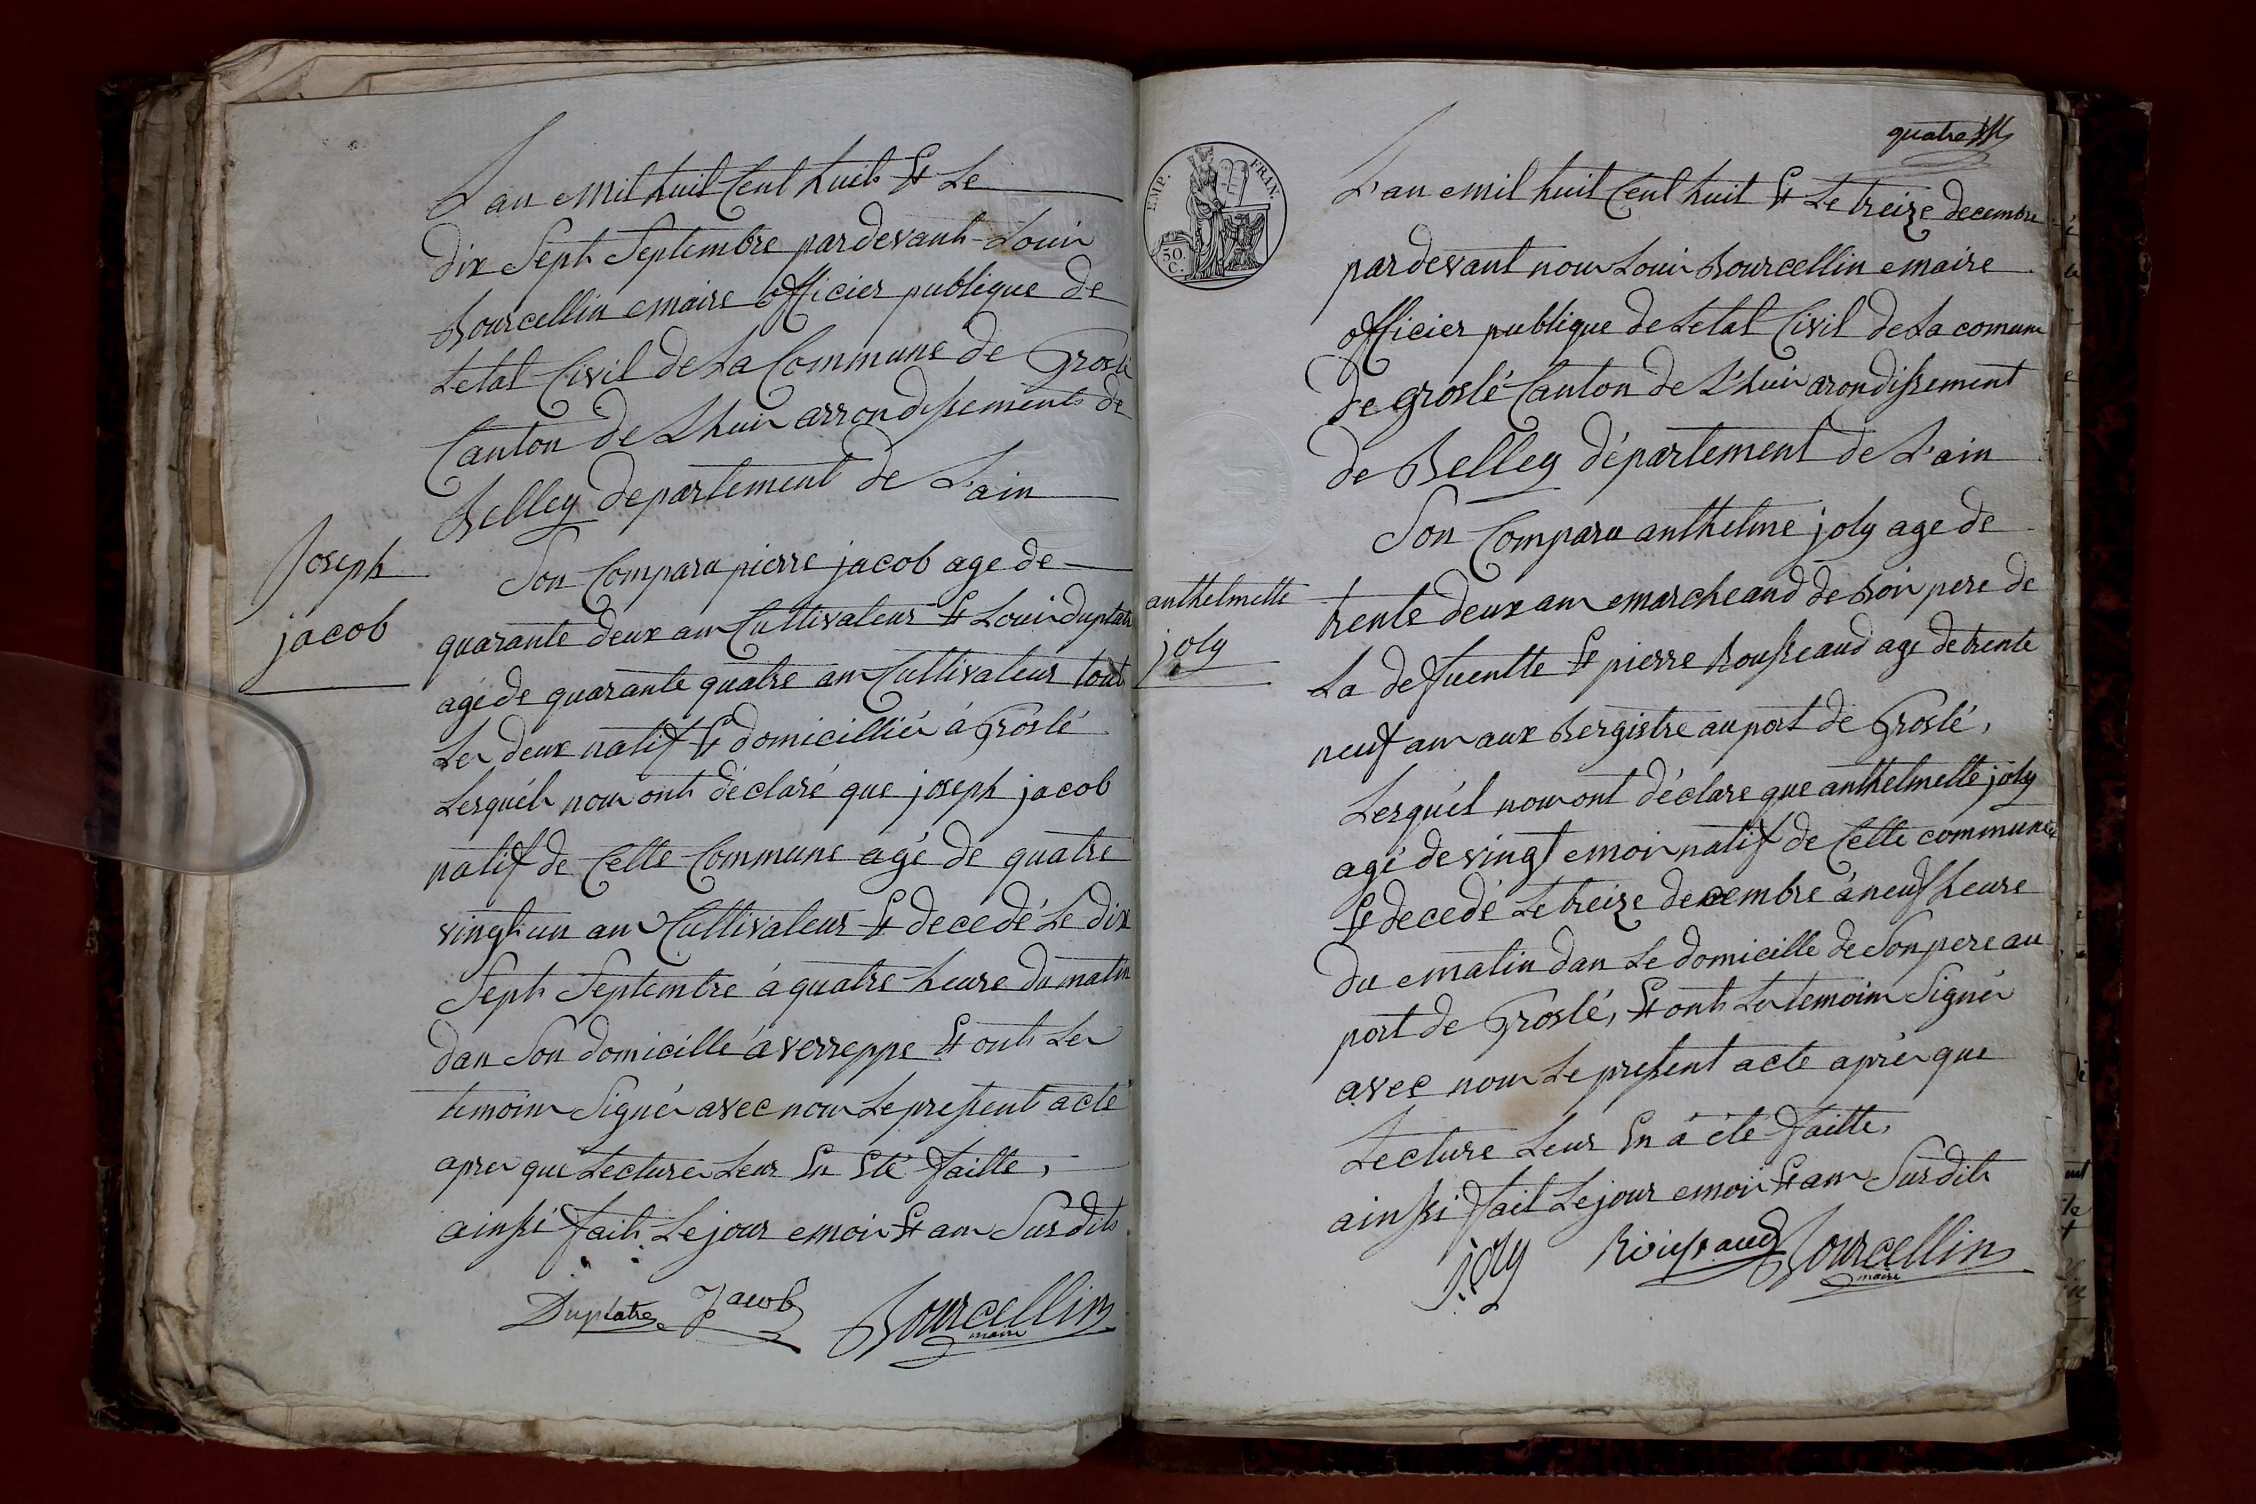 L'an mil huit Cent huit Et Le
dix Sept Septembre pardevant Louis
Bourcellin maire officier publique de
Letat Civil de La Commune de Groslé
Canton de Lhuis arrondissement de
Belley departement de L'ain
Son Comparu pierre jacob age de
Joseph
jacob
quarante deux ans Cultivateur Et Louis duplatre
agé de quarante quatre ans Cultivateur tout
Les deux natif Et domicilliés à Groslé
Lesquels nous ont déclaré que joseph jacob
natif de Cette Commune agé de quatre
vingt un ans Cultivateur Et decedé Le dix
Sept Septembre à quatre heure du matin
dans Son domicille à verreppe Et ont Les
temoins Signés avec nous Le present acte
apres que Lecture Leur En Eté faitte,
ainssi fait Le jour mois Et ans Susdit
Duplatre Jacob Bourcellin
maire
quatre
EMP. FRAN.
50.
C.
L'an mil huit Cent huit Et Le treize decembre
pardevant nous Louis Bourcellin maire
officier publique de Letat Civil de La comune
de groslé Canton de L'huis arondissement
de Belley département de L'ain
Son Comparu anthelme joly age de
anthelmette
joly
trente deux ans marcheand de bois pere de
La defuentte Et pierre Rousseaud age de trente
neuf ans aux Bergistre au port de Groslé,
Lesquels nous ont déclare que anthelmette joly
agé de vingt mois natif de Cette commune
Et decedé Le treize decembre à neuf heure
du matin dans Le domicille de Son pere au
port de Groslé, Et ont Les temoins Signés
avec nous Le present acte après que
Lecture Leur En à été faitte,
ainssi fait Le jour mois Et ans Susdit
joly Roussaud Bourcellin
maire